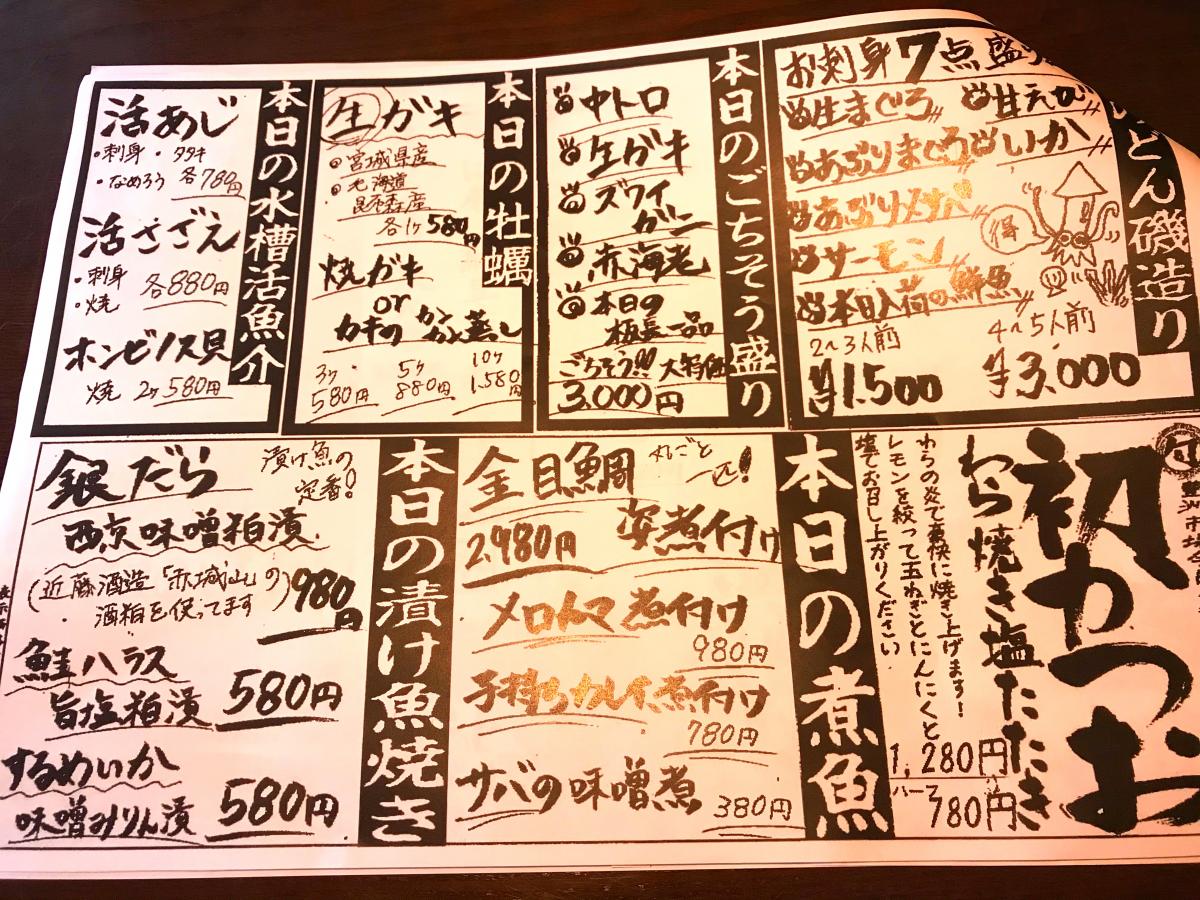 どん磯造り
お刺身7点盛り
生まぐろ
甘えび
あぶりまぐろ
いか
あぶりメカ
サーモン
本日入荷の鮮魚
得
2〜3人前
¥1.500
4〜5人前
¥3.000
本日のごちそう盛り
中トロ
生ガキ
ズワイ
ガニ
赤海老
本日の
板長一品
ごちそう!! 大特価
3.000円
本日の牡蠣
生ガキ
宮城県産
北海道
昆布森産
各1ヶ580円
焼ガキ
or
カキのカンカン蒸し
3ヶ
580円
5ヶ
880円
10ヶ
1.580円
本日の水槽活魚介
活あじ
・刺身・タタキ
・なめろう 各780円
活さざえ
・刺身
・焼
各880円
ホンビノス貝
焼 2ヶ580円
初かつお
わら焼き塩たたき
わらの炎で豪快に焼き上げます!
レモンを絞って玉ねぎとにんにくと
塩でお召し上がりください
1,280円
ハーフ
780円
本日の煮魚
金目鯛
丸ごと
一匹!
2.980円
姿煮付け
メロカマ煮付け
980円
子持ちカレイ煮付け
780円
サバの味噌煮
380円
本日の漬け魚焼き
銀だら
漬け魚の
定番!
西京味噌粕漬
(近藤酒造「赤城山」の
酒粕を使ってます)
980円
鮭ハラス
旨塩粕漬 580円
するめいか
味噌みりん漬 580円